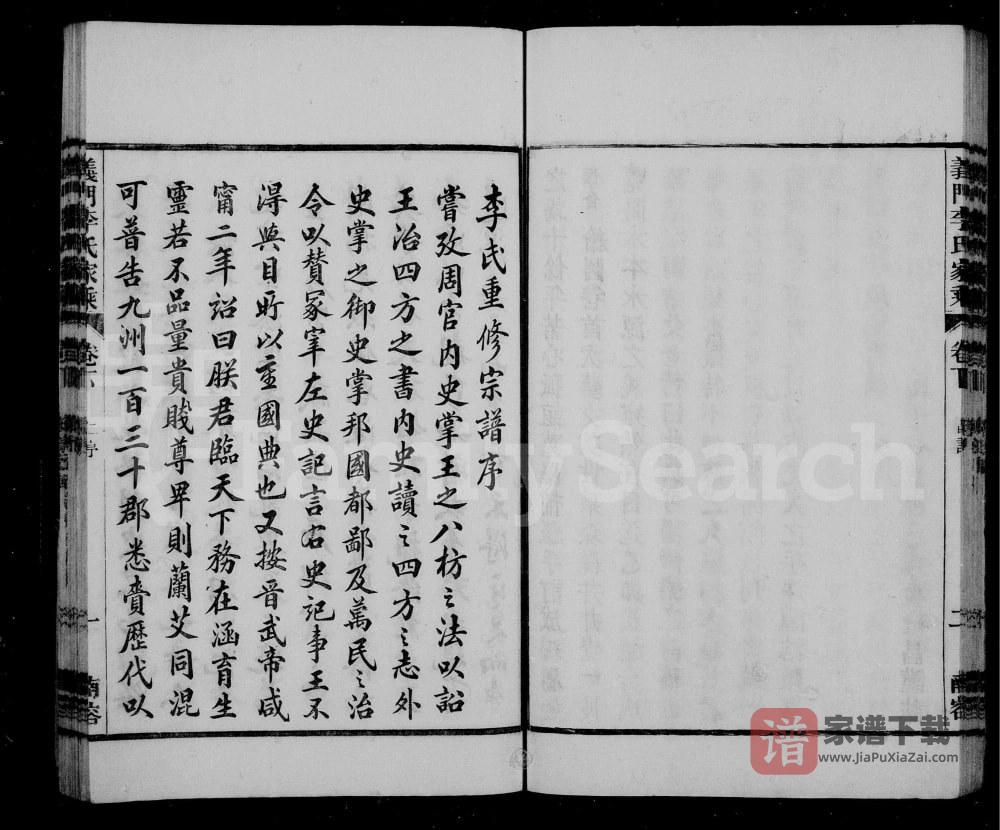 李氏重修宗譜序
嘗攷周官内史掌王之八枋之法以詔
王治四方之書内史讀之四方之志外
史掌之御史掌邦國都鄙及萬民之治
令以贊冢宰左史記言右史記事王不
得與目所以重國典也又按晉武帝咸
甯二年詔曰朕君臨天下務在涵育生
靈若不品量貴賤尊卑則蘭艾同混
可普告九州一百三十郡悉賫歷代以
義門李氏家乘
卷六
一
義門李氏家乘
二
FamilySearch
谱
家谱下载
www.JiaPuXiaZai.com